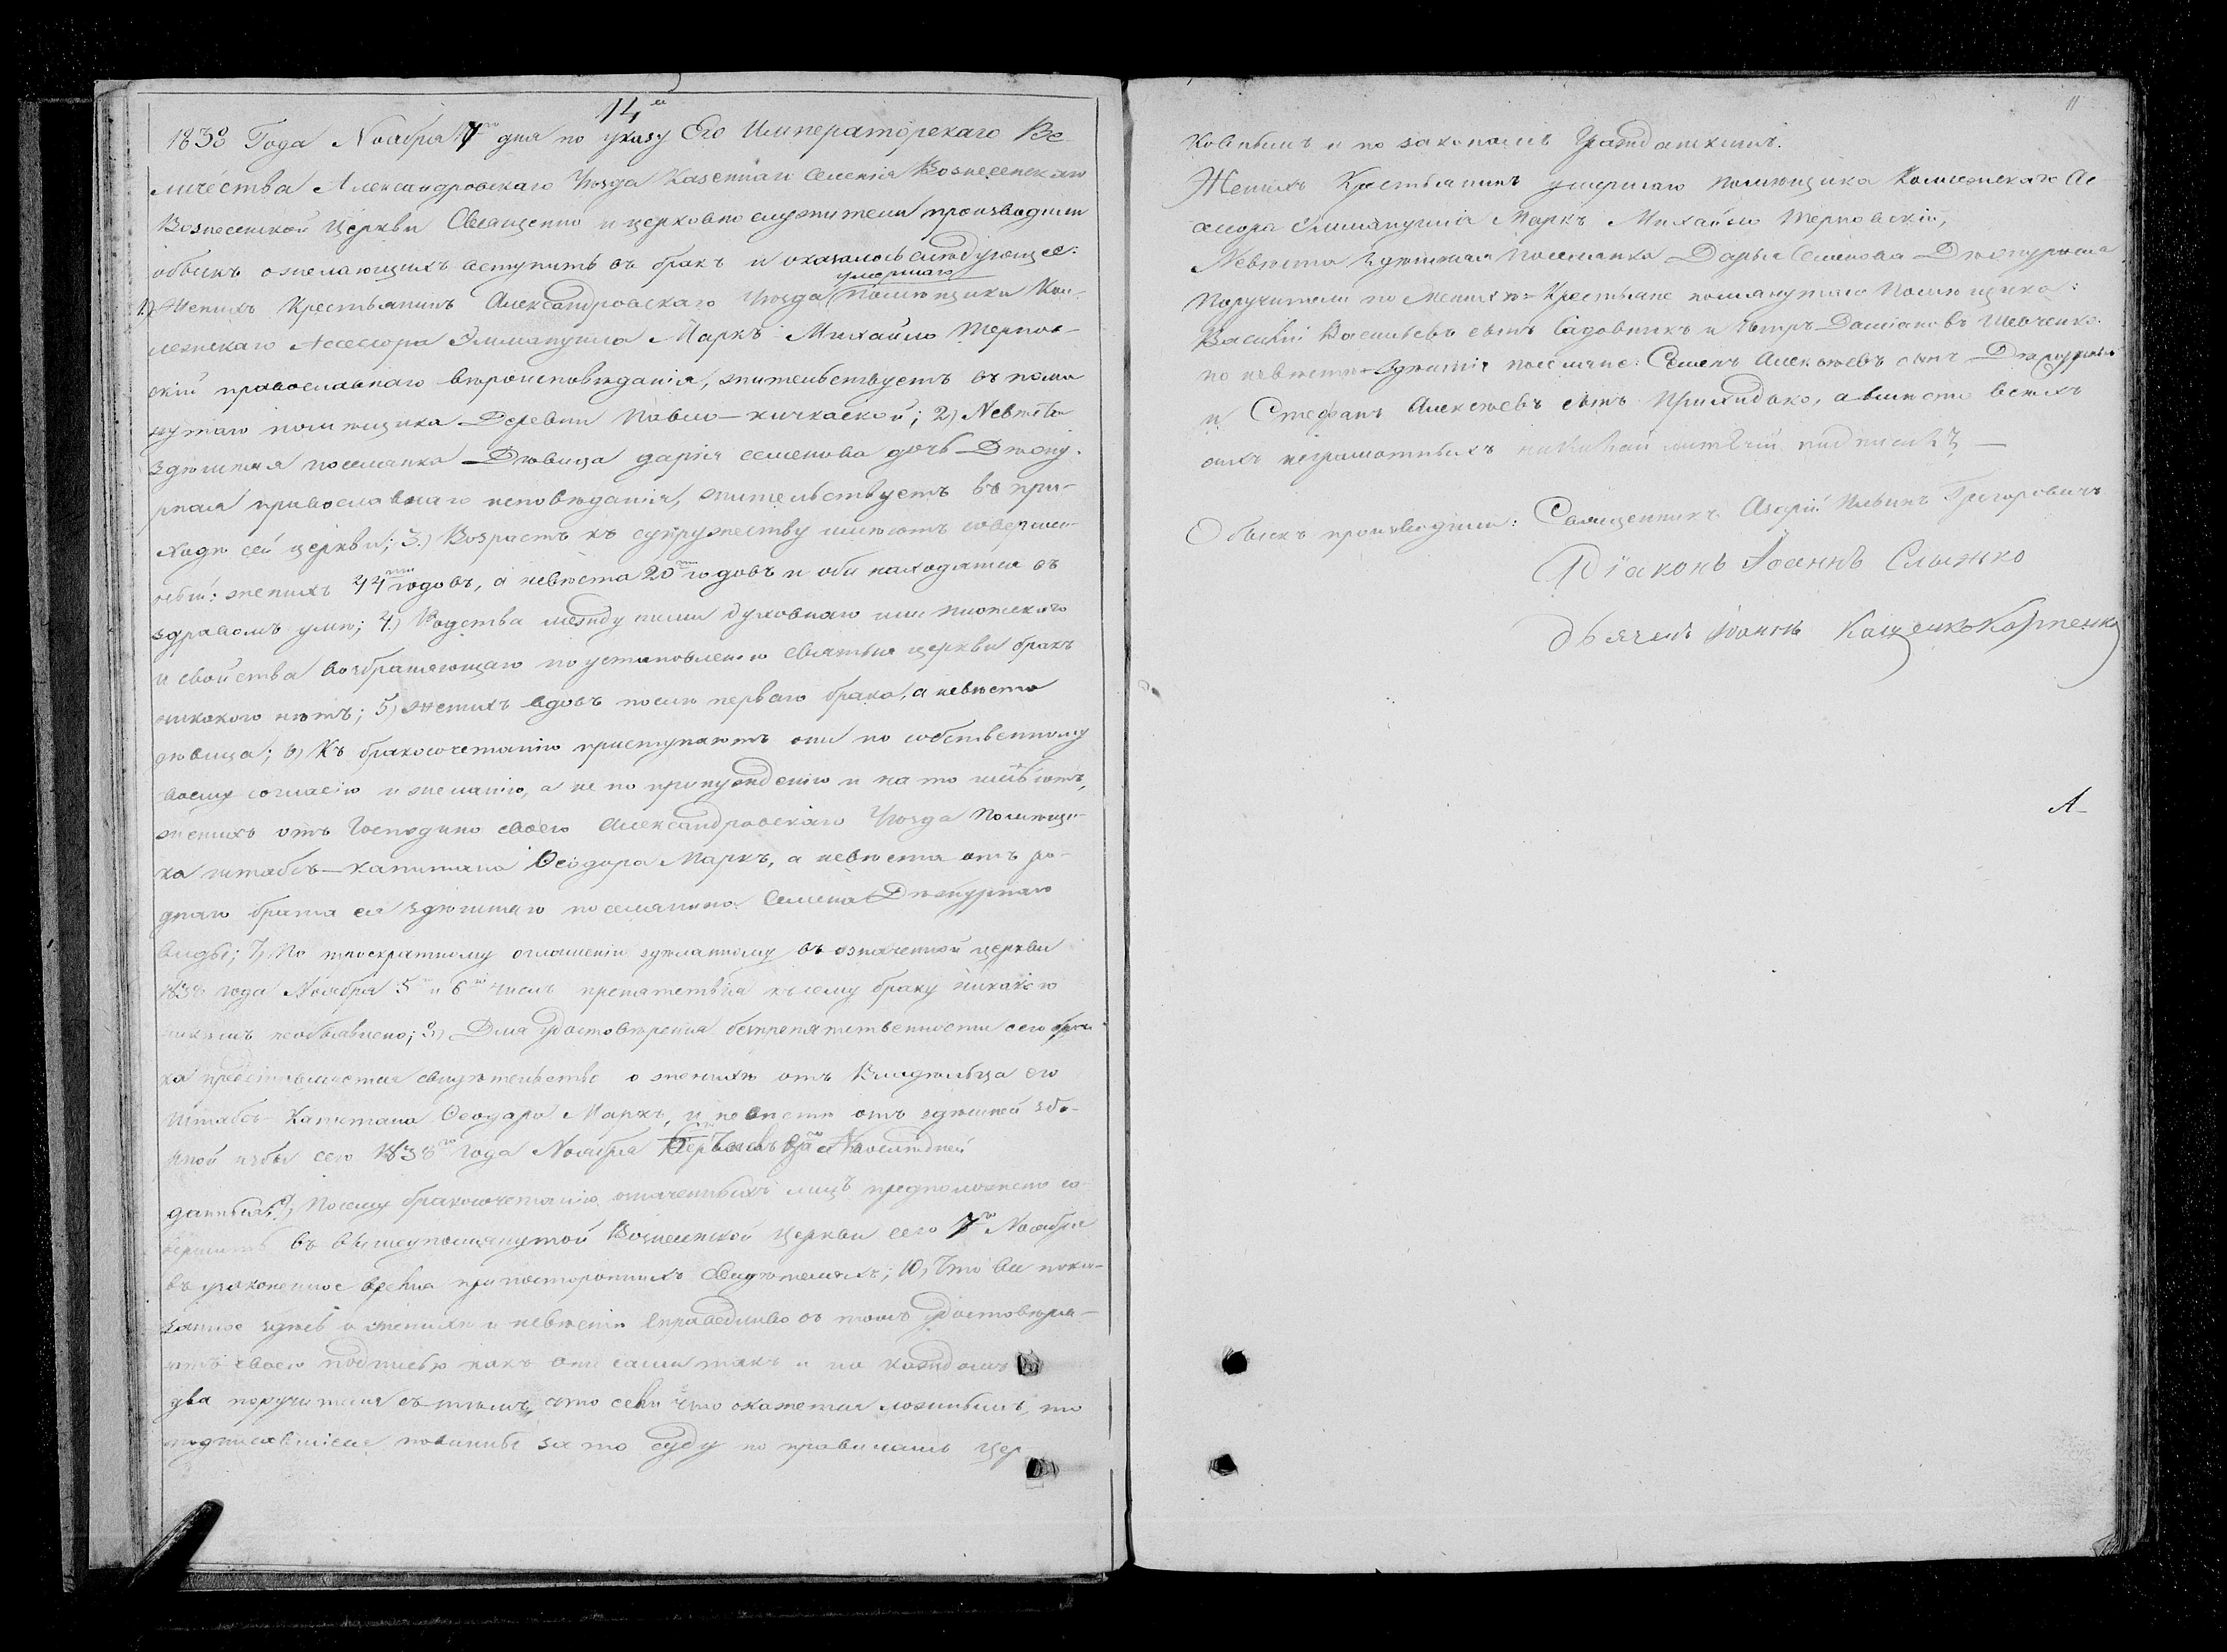 14й
1838 Года Ноября 7го дня по указу Его Императорскаго Ве
личества Александровскаго Уезда Казеннаго Селенія Вознесенскаго
Вознесенской Церкви Священно и церковно служители производили
обыскъ о желающихъ вступить въ бракъ и оказалось следующее:
умершаго
1) Женихъ Крестьянинъ Александровскаго Уезда Помѣщика Кол
лежскаго Ассесора Эммануила Маркъ Михайло Тернов-
скій православнаго вѣроисповѣданія, жительствуетъ въ помя
нутаго помѣщика Деревни Павло-кичкаской; 2) Невѣста
здѣшняя поселянка Дѣвица дарія семенова дочь Дѣжу-
рная православнаго исповѣданія, жительствуетъ въ при-
ходѣ сей церкви; 3.) Возрастъ къ супружеству имѣютъ соверше-
нный: женихъ 44 годовъ, а невѣста 20 годовъ и оба находятся въ
здравомъ умѣ; 4.) Родства между ними духовнаго или плотскаго
и свойства возбраняющаго по установленію святыя церкви бракъ
никакого нѣтъ; 5) женихъ вдовъ послѣ перваго брака, а невѣста
дѣвица; 6) Къ бракосочетанію приступаютъ они по собственному
своему согласію и желанію, а не по принужденію и на то имѣютъ,
женихъ отъ Господина своего Александровскаго Уезда Помѣщи-
ка штабсъ-капитана Ѳеодора Маркъ, а невѣста отъ ро-
днаго брата ея здѣшняго поселянина Семена Дѣжурнаго
виды; 7, По троекратному оглашенію зделанному въ означенной церкви
1838 года Ноября 5 и 6го числъ препятствія къ сему браку никакого
никѣмъ необъявлено; 8) Для удостовѣренія безпрепятственности сего бра-
ка представляются свидѣтельство о женихѣ отъ Владѣльца его
Штабсъ-Капитана Ѳеодора Маркъ, и невѣстѣ отъ здѣшней сбо-
рной избы сего 1838го года Ноября
данныя 9, Посему бракосочетанію означенныхъ лицъ предположено со
вершить въ вышеупомянутой Вознесенской Церкви сего 7го Ноября
въ узаконенное время при постороннихъ Свидѣтеляхъ; 10, Что все пока-
занное здѣсь о женихѣ и невѣстѣ справедливо въ томъ удостовѣря-
ютъ своею подписью какъ они сами такъ и по каждомъ
два поручителя съ тѣмъ, что если что окажется ложнымъ, то
подписавшіеся повинны за то суду по правиламъ Цер
11
ковнымъ и по законамъ Гражданскимъ.
Женихъ Крестьянинъ умершаго помѣщика Коллежскаго Ас
сесора Эммануила Маркъ Михайло Терновскій,
Невѣста Здѣшняя Поселянка Дарья Семенова Дѣжурная
Поручители по Женихѣ-Крестьяне помянутаго Помѣщика:
Василій Васильевъ сынъ Садовникъ и Петръ Даміановъ Шевченко.
по невѣстѣ-здѣшнія поселяне: Семенъ Алексѣевъ сынъ Дѣжурный
и Стефанъ Алексѣевъ сынъ Прихидько, а вмѣсто всѣхъ
ихъ неграмотныхъ
Обыскъ производили: Священникъ Григоровичъ
Діаконъ Іоаннъ Слынько
дьячекъ Кащенко Карпенко